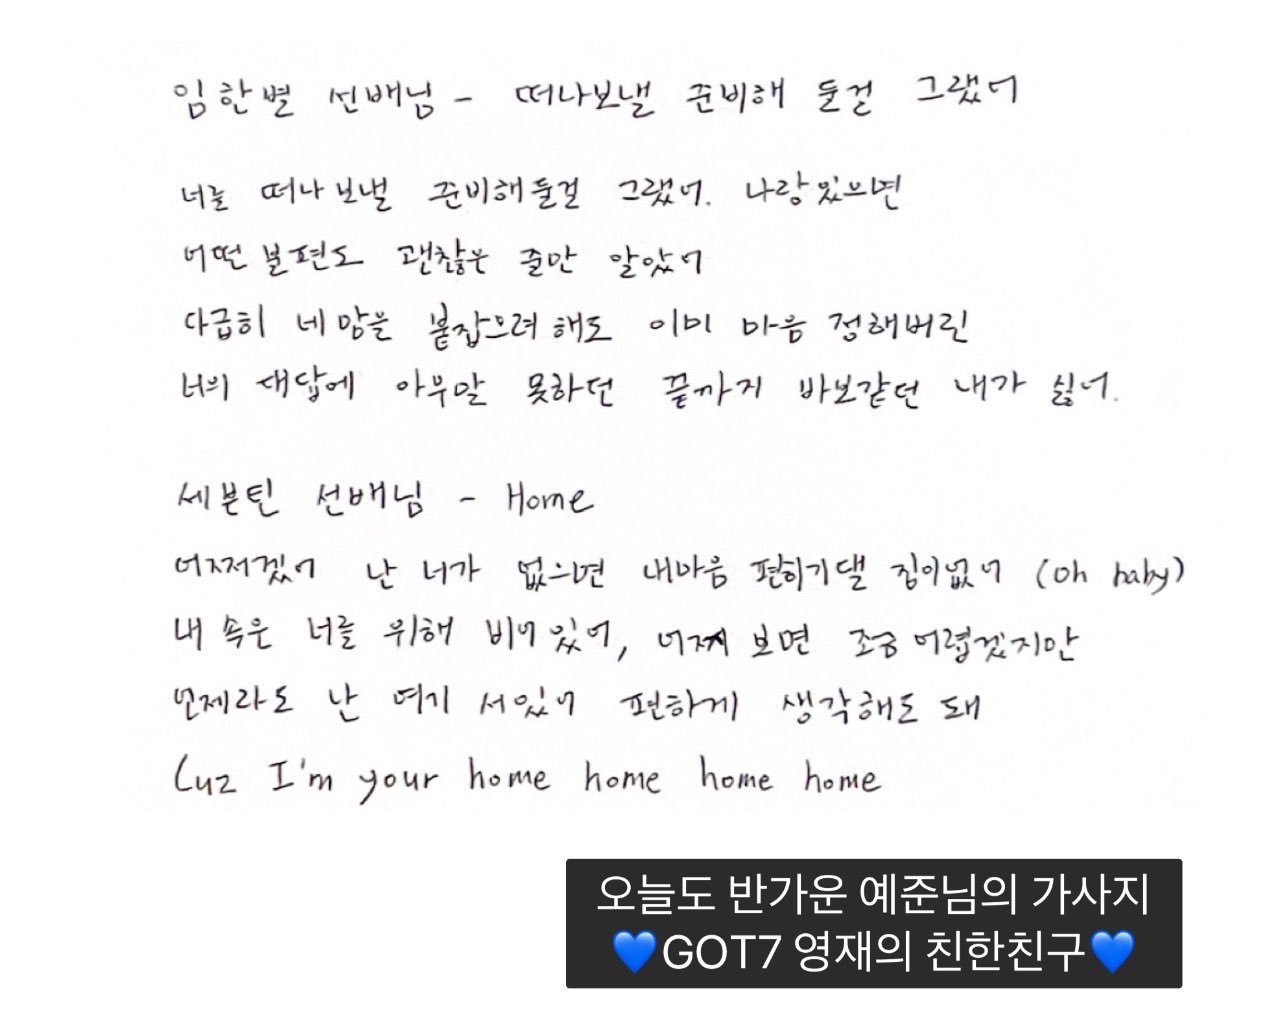 임한별 선배님 - 떠나보낼 준비해 둘걸 그랬어
너를 떠나보낼 준비해둘걸 그랬어. 나랑있으면
어떤 불편도 괜찮은 줄만 알았어
다급히 네 맘을 붙잡으려 해도 이미 마음 정해버린
너의 대답에 아무말 못하던 끝까지 바보같던 내가 싫어.
세븐틴 선배님 - Home
어쩌겠어 난 너가 없으면 내마음 편히기댈 집이없어 (Oh baby)
내 속은 너를 위해 비어있어, 어찌 보면 조금 어렵겠지만
언제라도 난 여기 서있어 편하게 생각해도 돼
Cuz I'm your home home home home
오늘도 반가운 예준님의 가사지
💙GOT7 영재의 친한친구💙